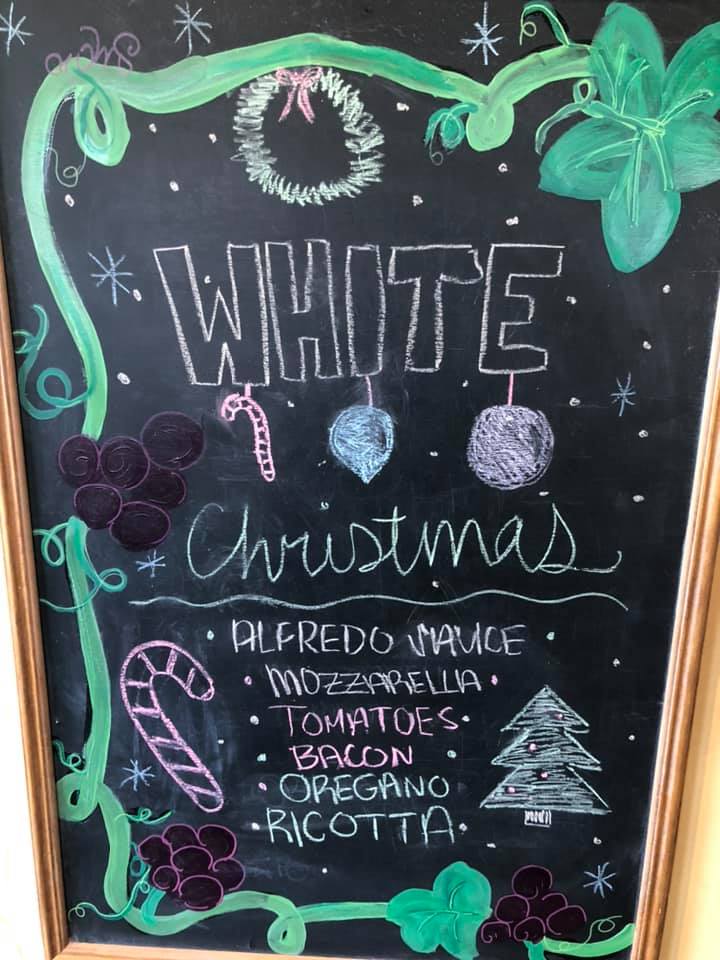 WHITE
Christmas
ALFREDO SAUCE
• MOZZARELLA •
• TOMATOES •
• BACON •
• OREGANO
• RICOTTA •